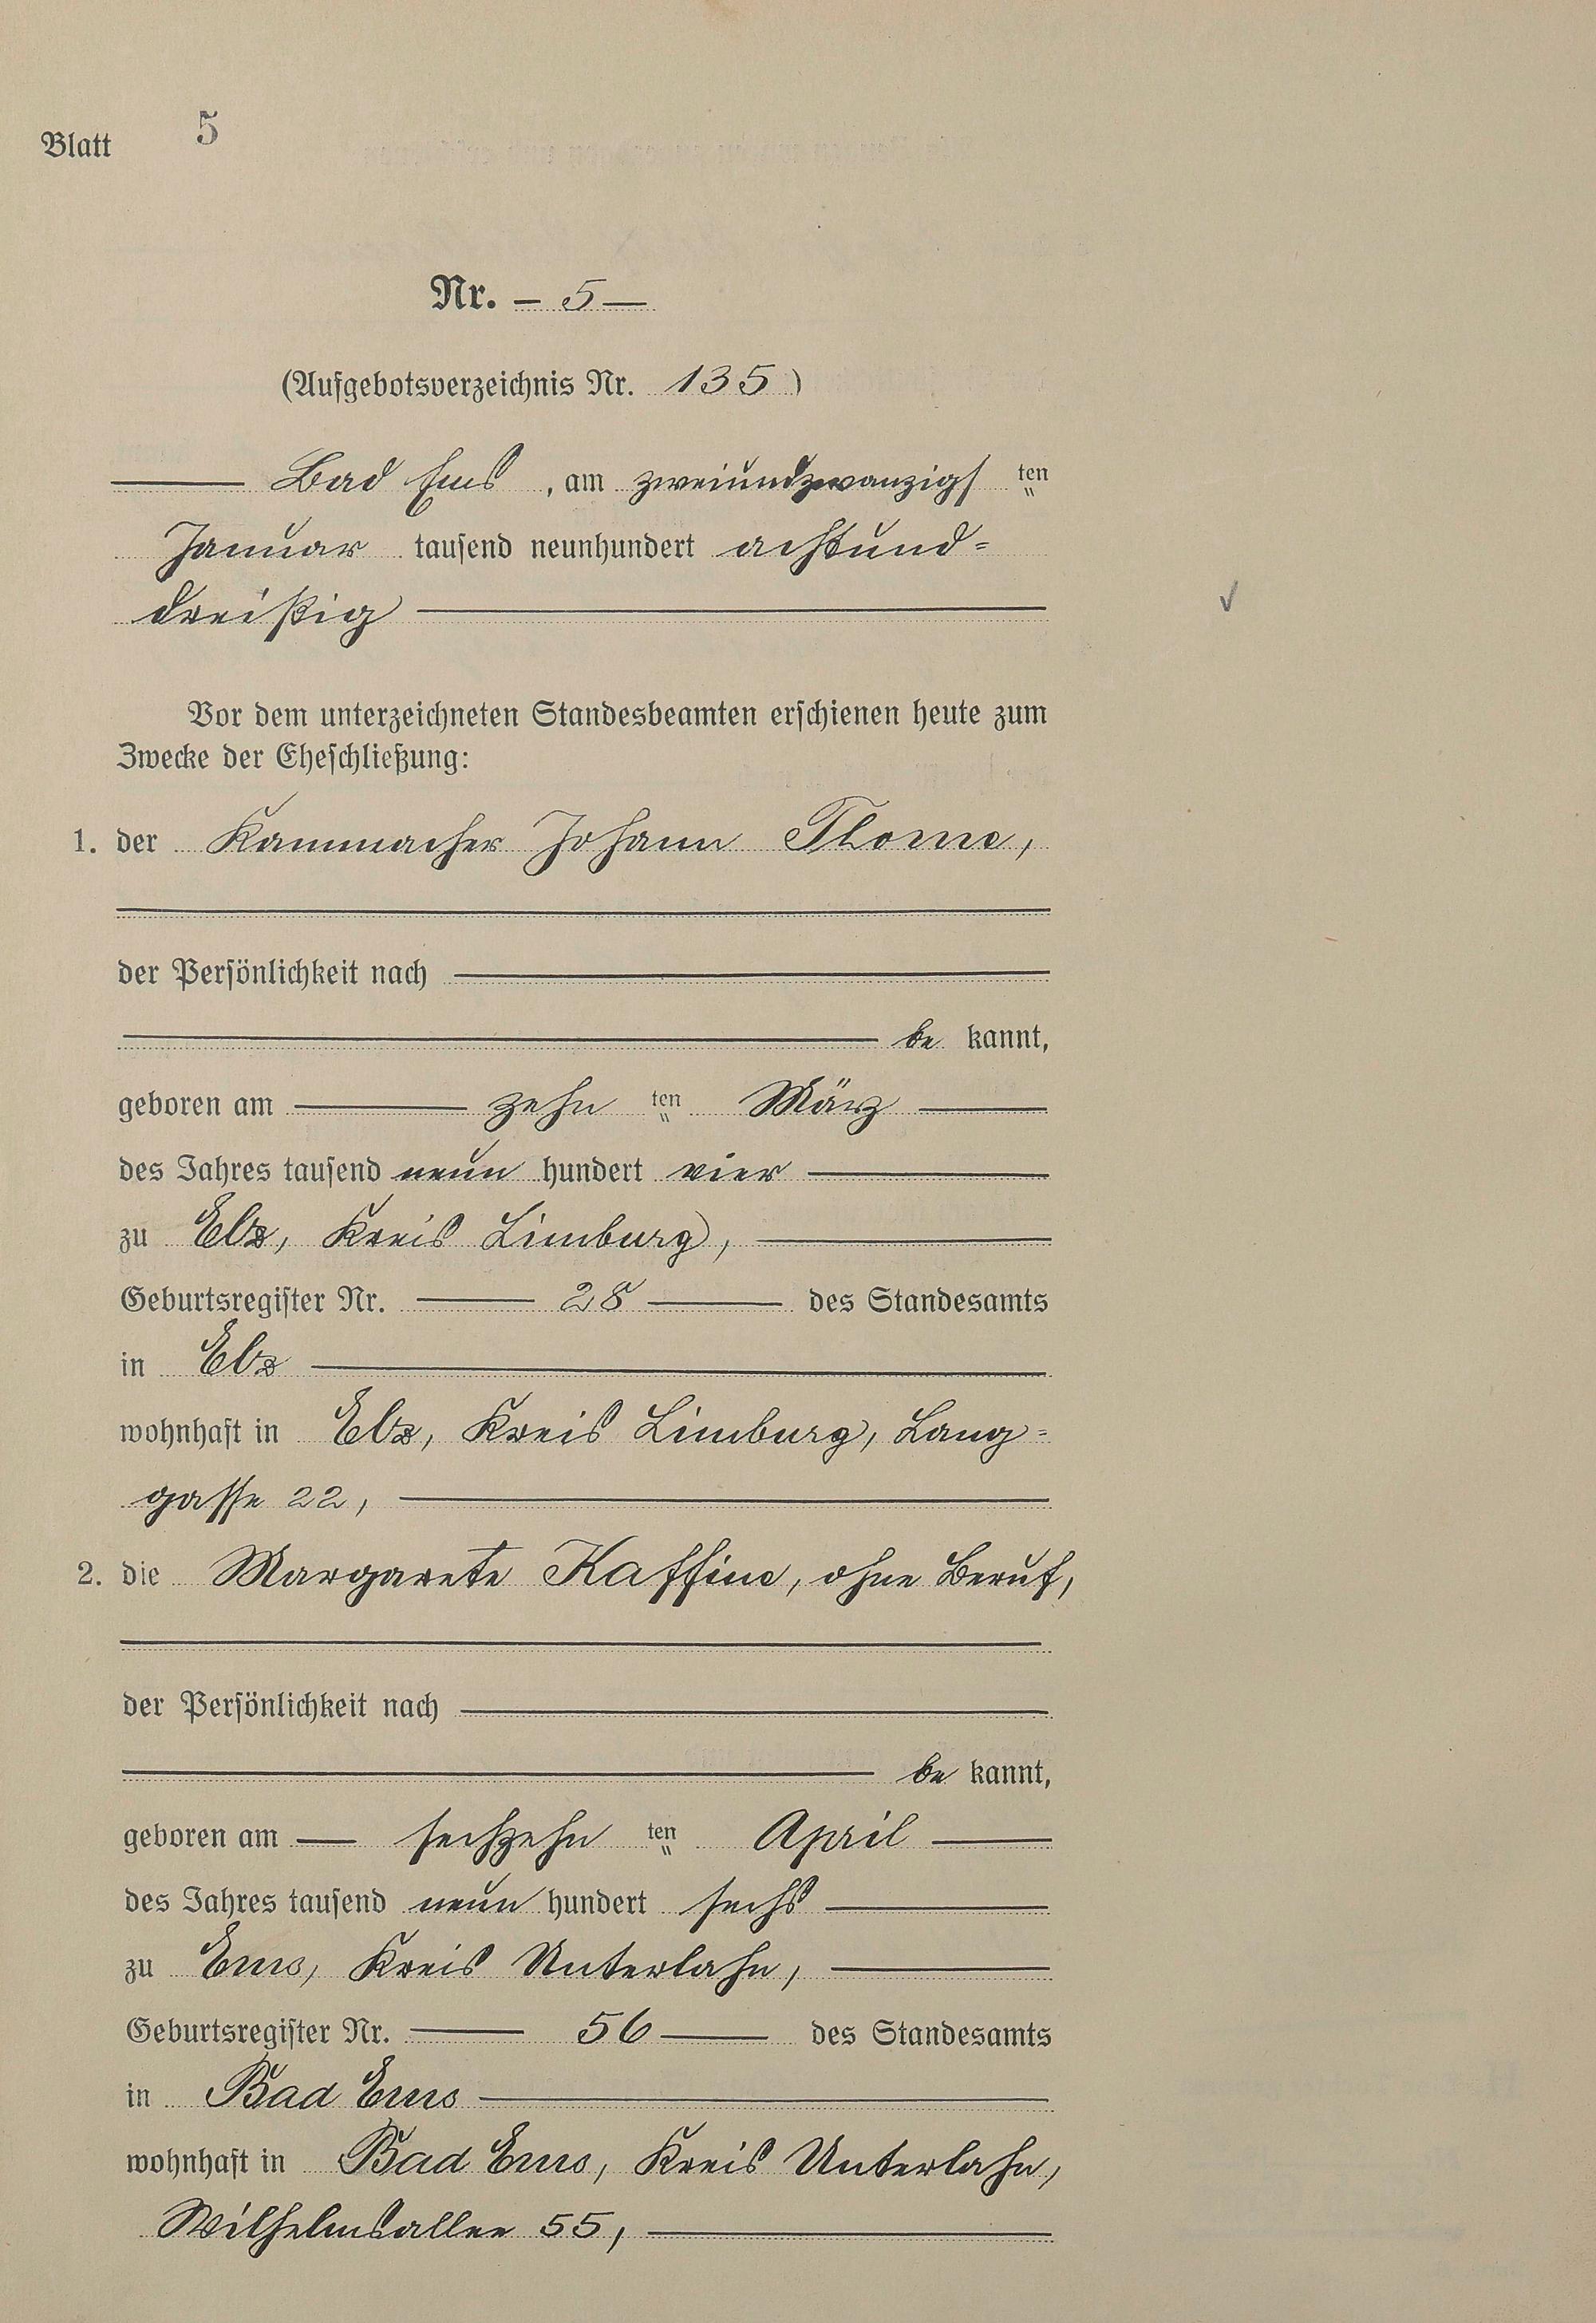 Blatt 5
Nr. – 5 –
(Aufgebotsverzeichnis Nr. 135)
Bad Ems, am zweiundzwanzigsten
Januar tausend neunhundert achtund=
dreißig
Vor dem unterzeichneten Standesbeamten erschienen heute zum
Zwecke der Eheschließung:
1. der Kammacher Johann Thome,
der Persönlichkeit nach
be kannt,
geboren am zehn ten März
des Jahres tausend neun hundert vier
zu Elz, Kreis Limburg,
Geburtsregister Nr. 28 des Standesamts
in Elz
wohnhaft in Elz, Kreis Limburg, Lang=
gasse 22,
2. die Margarete Kaffine, ohne Beruf,
der Persönlichkeit nach
be kannt,
geboren am sechzehn ten April
des Jahres tausend neun hundert sechs
zu Ems, Kreis Unterlahn,
Geburtsregister Nr. 56 des Standesamts
in Bad Ems
wohnhaft in Bad Ems, Kreis Unterlahn,
Wilhelmsallee 55,